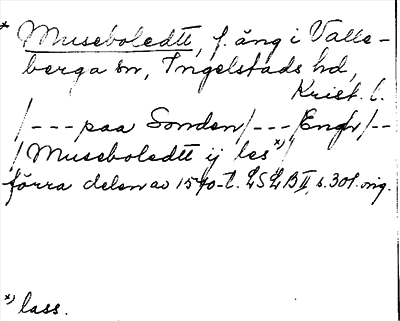 * Museboledtt, f. äng i Valle-
berga sn, Ingelstads hd,
Krist. l.
/--- paa Sonden/---/Engh/--
/Museboledtt ij les x)/
förra delen av 1570-t. LSLB II, s. 301. orig.
x) lass.